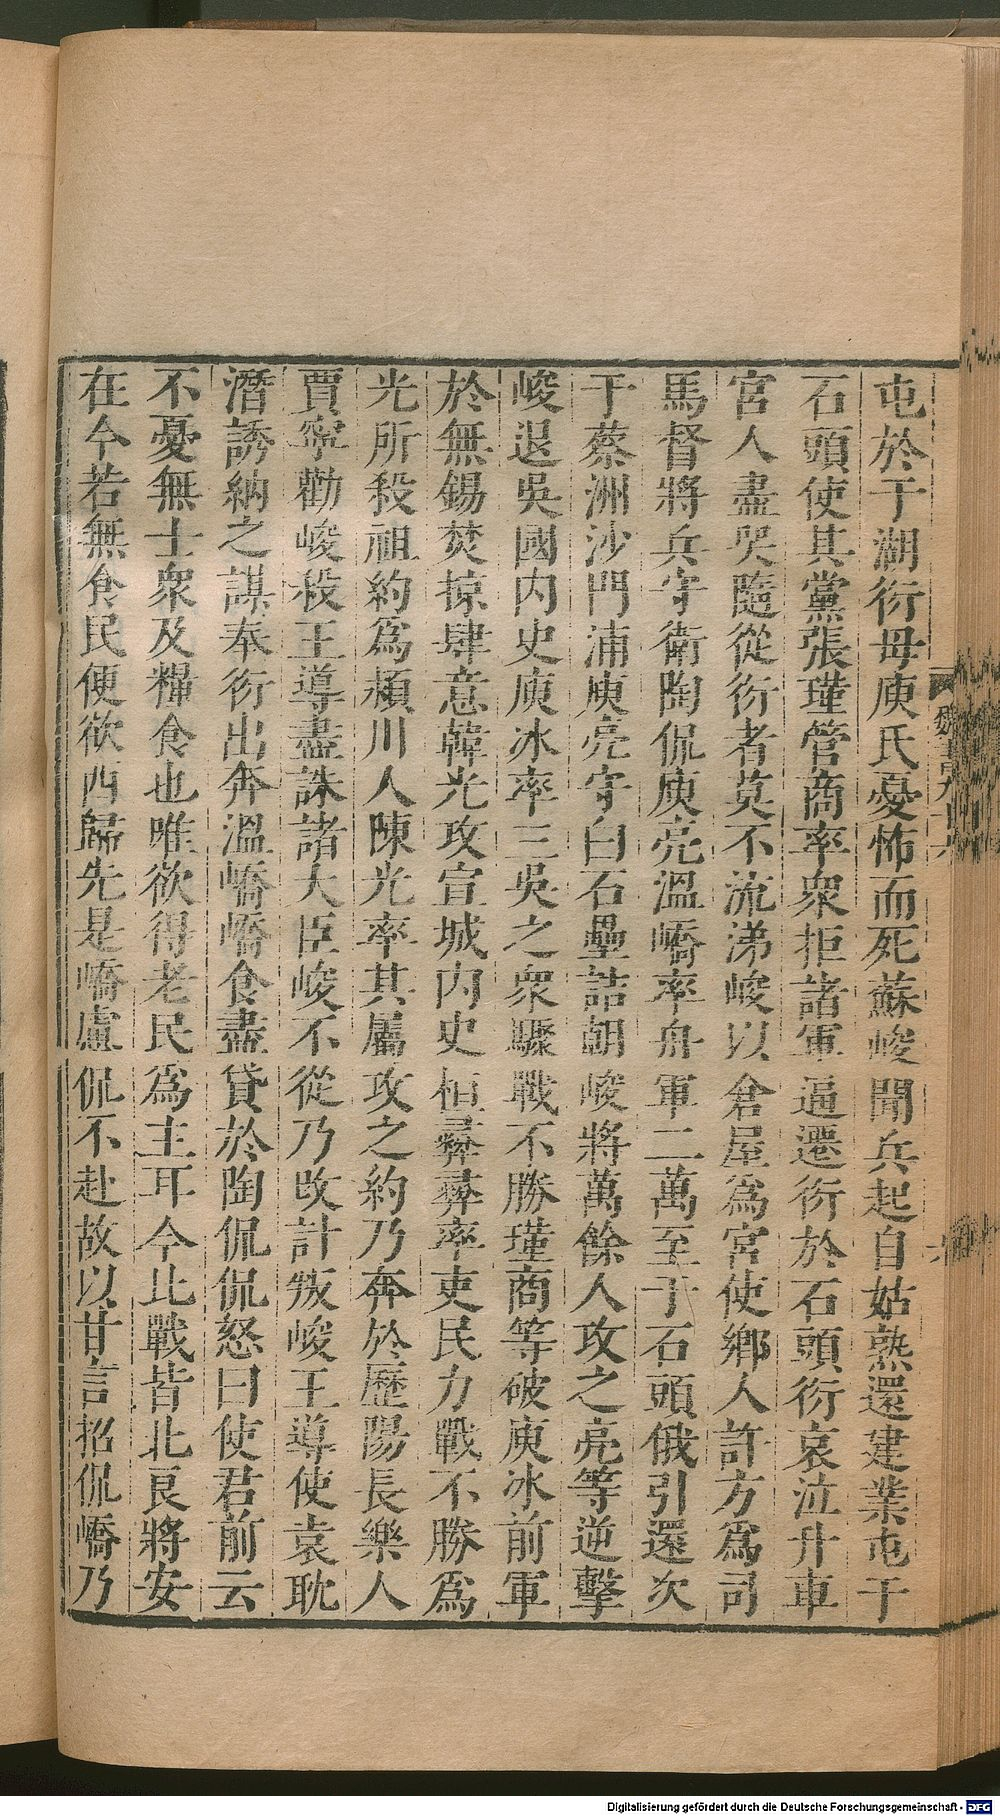 屯於于湖衍母庾氏憂怖而死蘇峻聞兵起自姑熟還建業屯于
石頭使其黨張瑾管商率衆拒諸軍逼遷衍於石頭衍哀泣升車
宮人盡哭隨從衍者莫不流涕峻以倉屋爲宮使鄉人許方爲司
馬督將兵守衛陶侃庾亮溫嶠率舟軍二萬至于石頭俄引還次
于蔡洲沙門浦庾亮守白石壘詰朝峻將萬餘人攻之亮等逆擊
峻退吳國內史庾冰率三吳之衆驟戰不勝瑾商等破庾冰前軍
於無錫焚掠肆意韓光攻宣城內史桓彝彝率吏民力戰不勝爲
光所殺祖約爲潁川人陳光率其屬攻之約乃奔於歷陽長樂人
賈寧勸峻殺王導盡誅諸大臣峻不從乃改計叛峻王導使袁耽
潛誘納之謀奉衍出奔溫嶠嶠食盡貸於陶侃侃怒曰使君前云
不憂無士衆及糧食也唯欲得老民爲主耳今比戰皆北良將安
在今若無食民便欲西歸先是嶠慮侃不赴故以甘言招侃嶠乃
魏書九十六
Digitalisierung gefördert durch die Deutsche Forschungsgemeinschaft - DFG